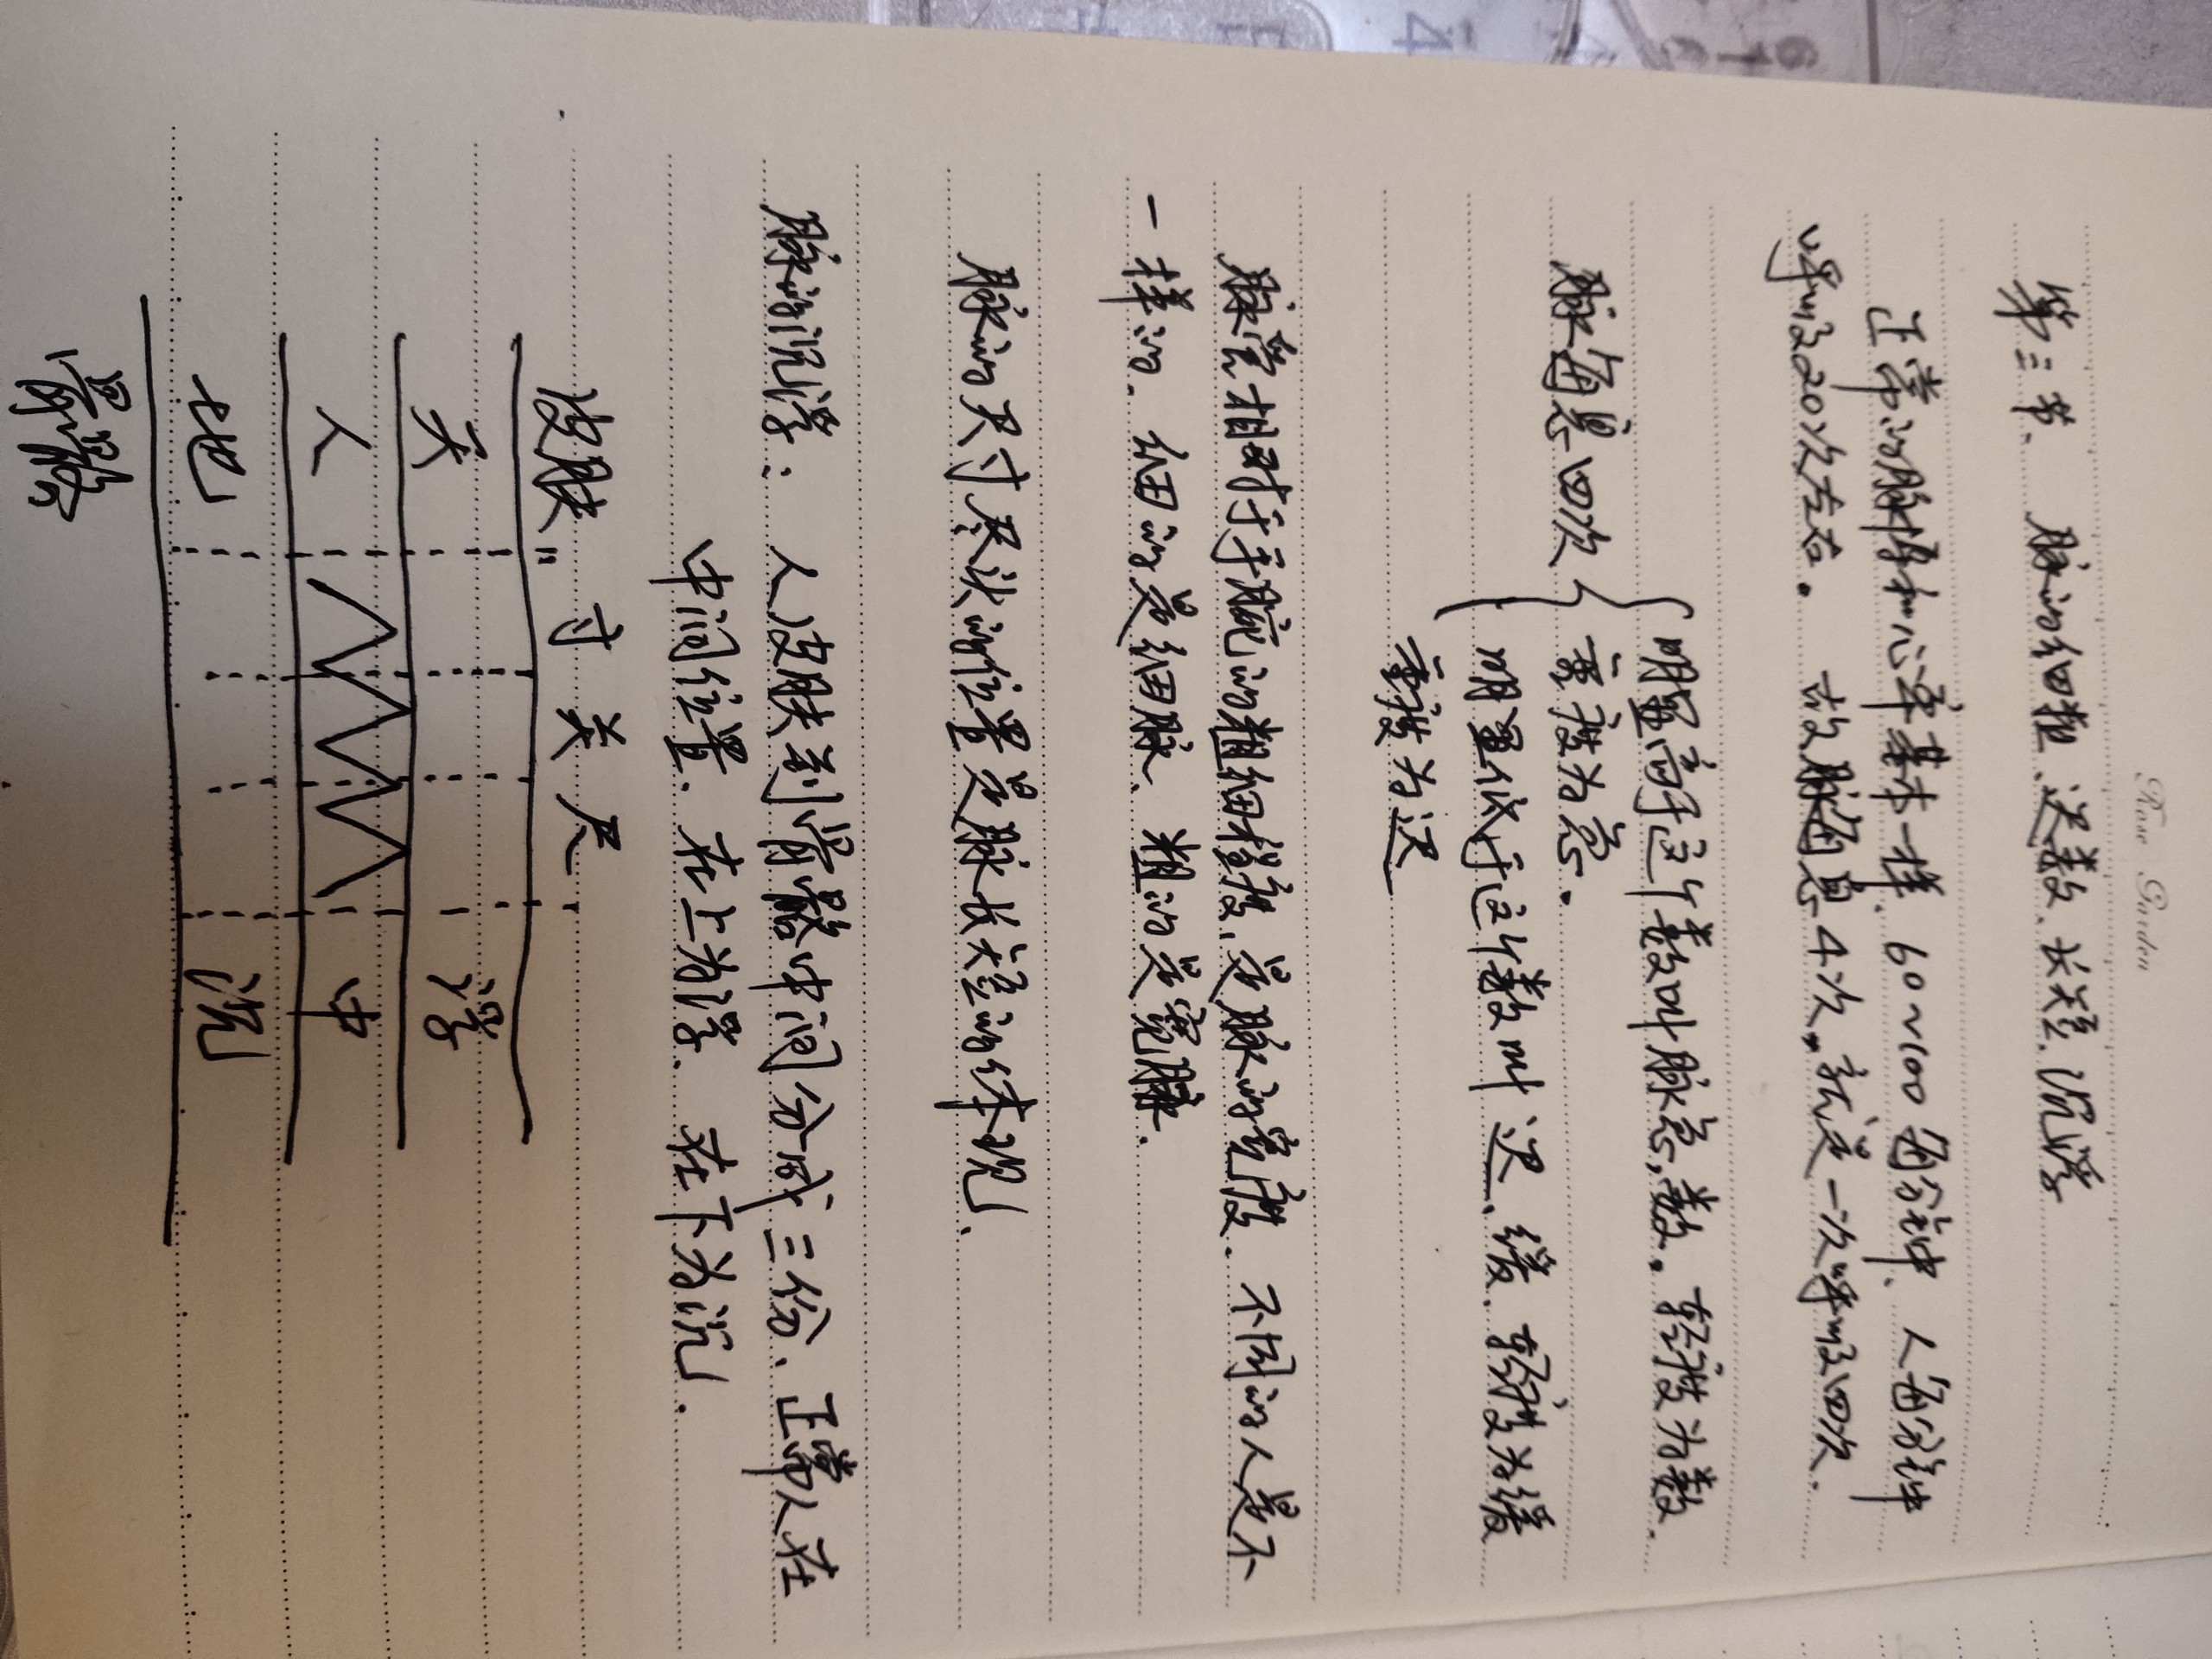 Rose Garden
第三节、脉的细粗、迟数、长短、沉浮
正常的脉搏和心率基本一样、60~100每分钟、人每分钟
呼吸20次左右。故脉每息4次,就是一次呼吸四次.
脉每息四次
明显高于这个数叫脉急,数。轻度为数.
重度为急。
明显低于这个数叫迟、缓、轻度为缓
重度为迟
脉管相对于手腕的粗细程度,是脉的宽度、不同的人是不
一样的、细的是细脉、粗的是宽脉.
脉的尺寸尽头的位置是脉长短的体现.
脉的沉浮:人皮肤到骨骼中间分成三份、正常人在
中间位置、在上为浮、在下为沉.
皮肤 寸 关 尺
天 浮
人 中
地 沉
骨骼